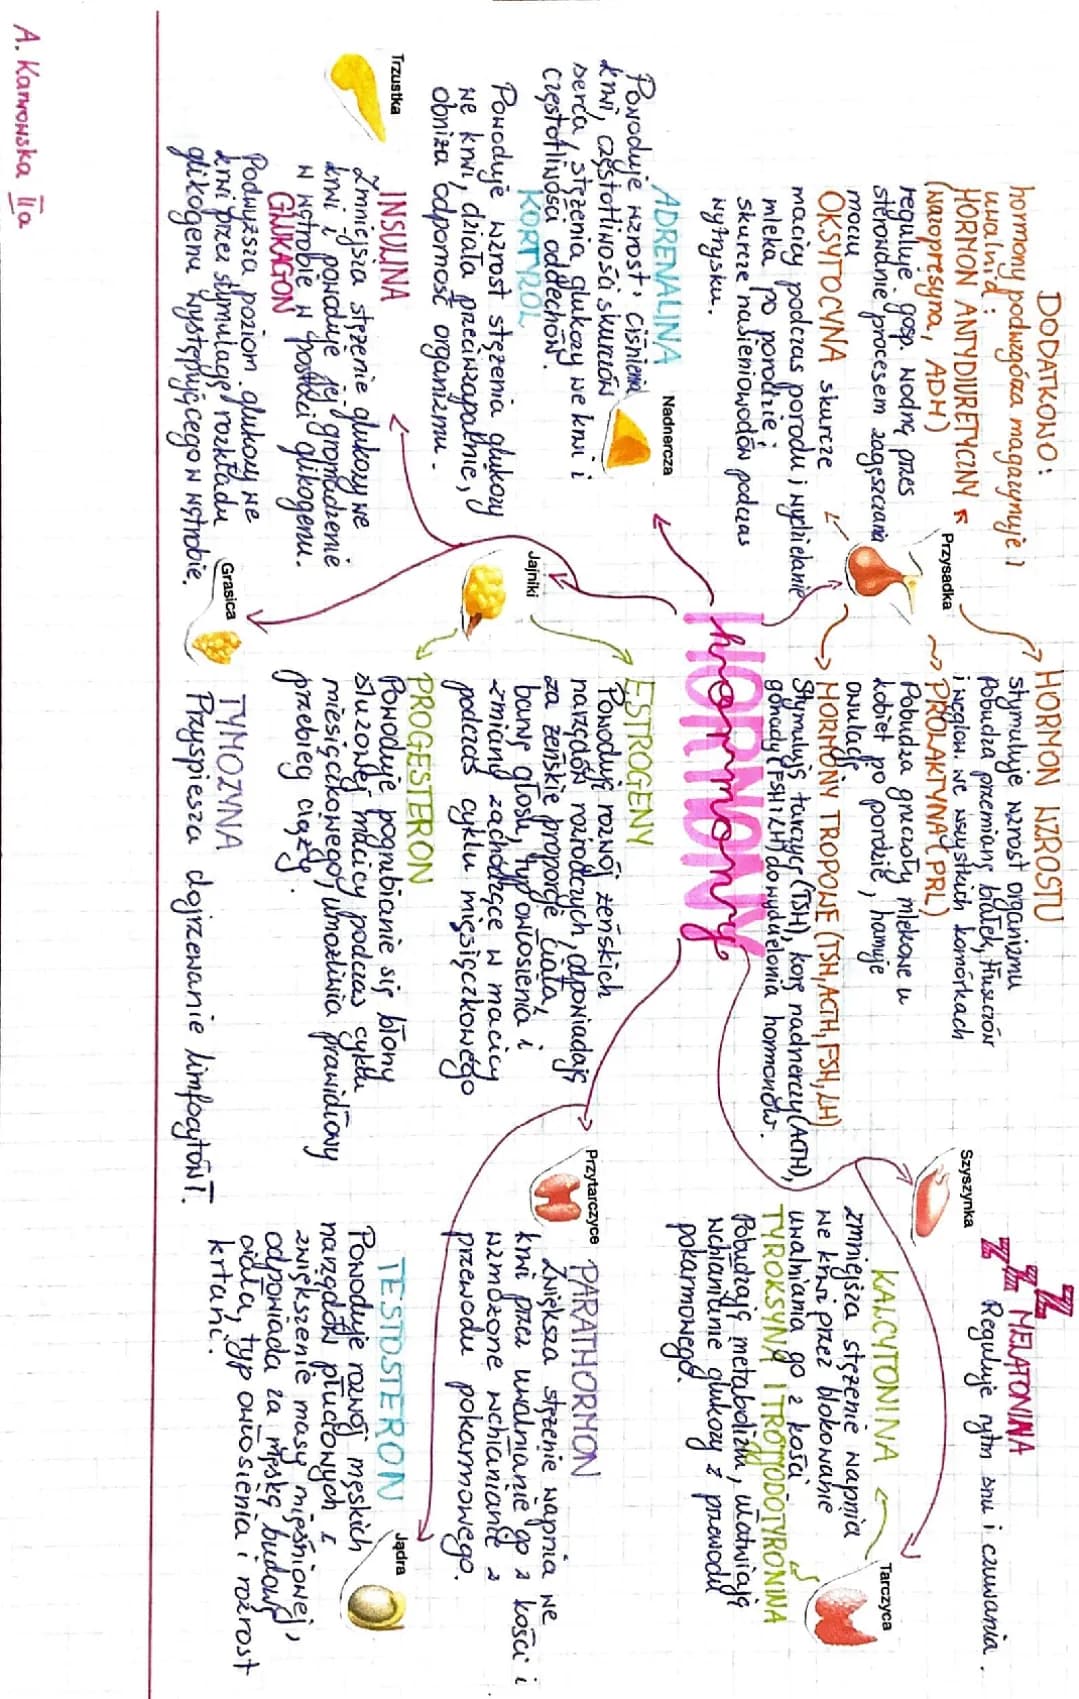 DODATKOWO:
hormony podwzgórza magazynuje i
uwalnia:
HORMON ANTYDIURETYCZNY
(wazopresyna, ADH)
reguluje gosp. wodną przez
sterowanie procesem zagęszczania
moczu
OKSYTOCYNA skurcze
macicy podczas porodu i wydzielanie
mleka po porodzie i
skurcze nasieniowodów podczas
wytrysku.
Przysadka
HORMON WZROSTU
stymuluje wzrost organizmu
pobudza przemianę białek, tłuszczów
i węglow. we wszystkich komórkach
PROLAKTYNA (PRL)
Pobudza gruczoły mlekowe u
kobiet po porodzie, hamuje
owulację
HORMONY TROPOWE (TSH, ACTH, FSH, LH)
Stymulują tarczycę (TSH), korę nadnerczy (ACTH),
gonady (FSH i LH) do wydzielania hormonów.
Szyszynka
zzZZ MELATONINA
Reguluje rytm snu i czuwania.
KALCYTONINA
zmniejsza stężenie wapnia
we krwi przez blokowanie
uwalniania go z kości
Tarczyca
TYROKSYNA I TRÓJJODOTYRONINA
Pobudzają metabolizm, ułatwiają
wchłanianie glukozy z przewodu
pokarmowego.
HORMONY
hormony
ADRENALINA
Nadnercza
Powoduje wzrost ciśnienia
krwi, częstotliwości skurczów
serca, stężenia glukozy we krwi i
częstotliwości oddechów.
KORTYZOL
Powoduje wzrost stężenia glukozy
we krwi, działa przeciwzapalnie,
obniża odporność organizmu.
Trzustka
INSULINA
Zmniejsza stężenie glukozy we
krwi i powoduje jej gromadzenie
w wątrobie w postaci glikogenu.
GLUKAGON
Podwyższa poziom glukozy we
krwi przez stymulację rozkładu
glikogenu występującego w wątrobie.
Jajniki
ESTROGENY
Powodują rozwój żeńskich
narządów rozrodczych, odpowiadają
za żeńskie proporcje ciała,
barwę głosu, typ owłosienia i
zmiany zachodzące w macicy
podczas cyklu miesiączkowego
PROGESTERON
Powoduje pogrubianie się błony
śluzowej macicy podczas cyklu
miesiączkowego, umożliwia prawidłowy
przebieg ciąży.
Grasica
TYMOZYNA
Przyspiesza dojrzewanie limfocytów T.
Przytarczyce
PARATHORMON
Zwiększa stężenie wapnia we
krwi przez uwalnianie go z kości i
wzmożone wchłanianie z
przewodu pokarmowego.
TESTOSTERON
Jądra
Powoduje rozwój męskich
narządów płciowych i
zwiększenie masy mięśniowej,
odpowiada za męską budowę
ciała, typ owłosienia i rozrost
krtani.
A. Karwowska IIa